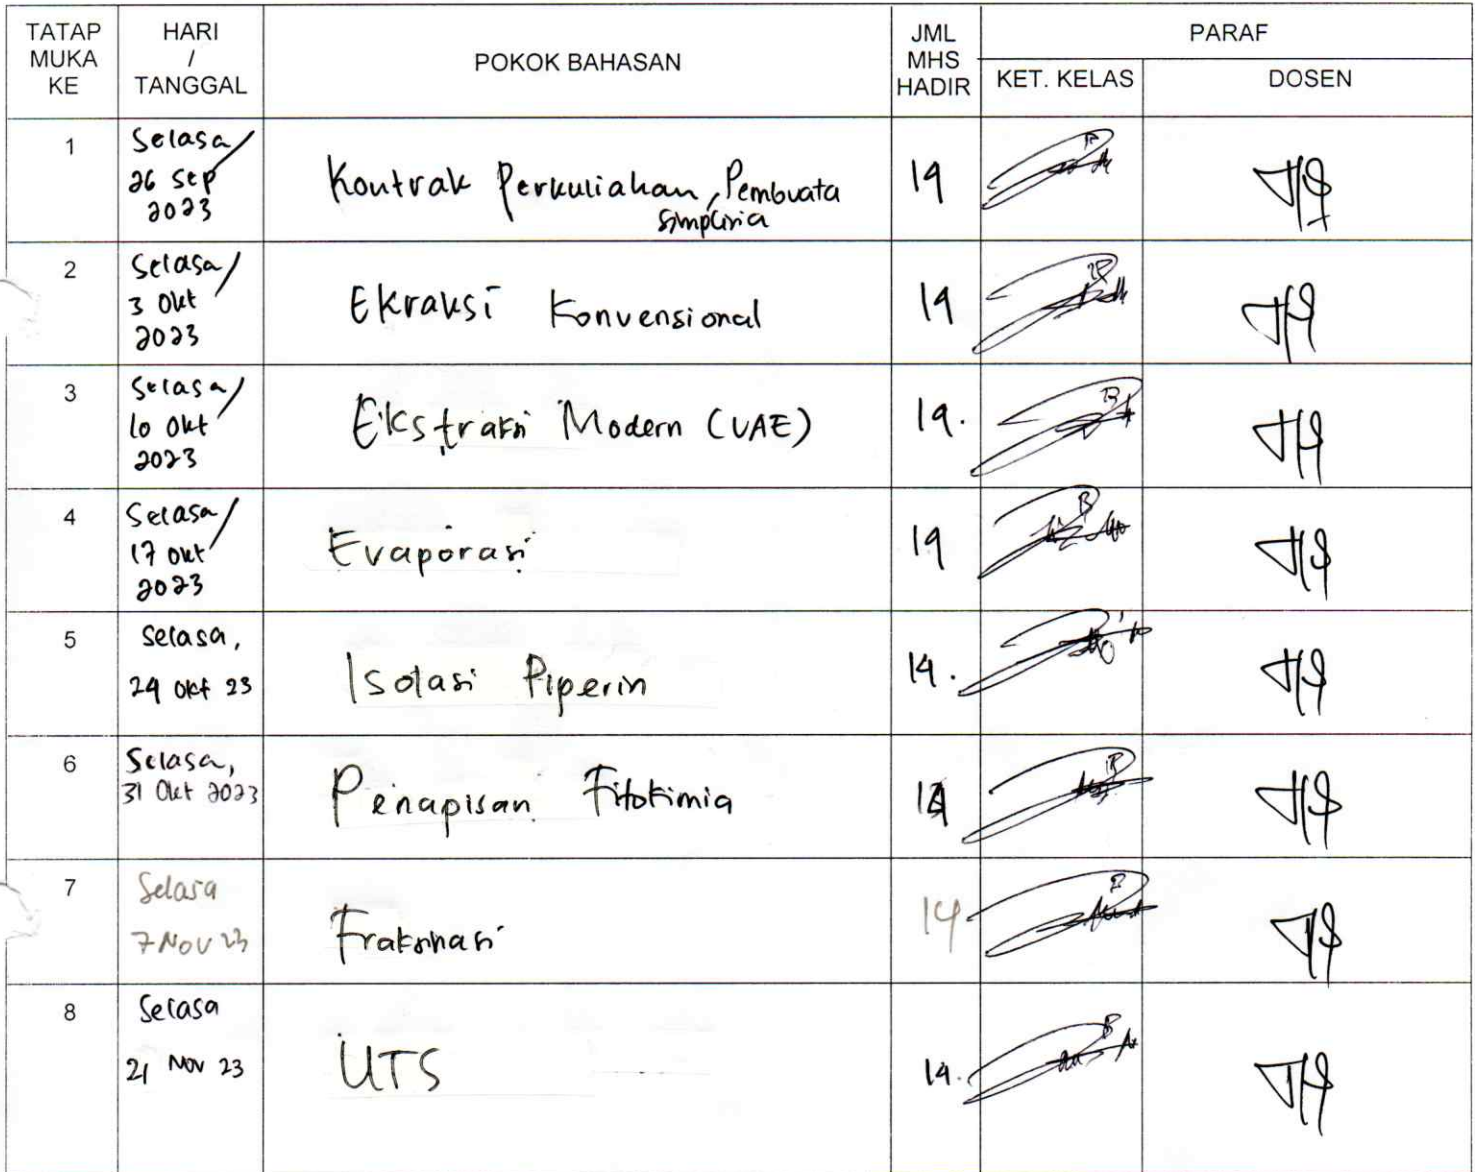 TATAP MUKA KE
HARI / TANGGAL
POKOK BAHASAN
JML MHS HADIR
PARAF
KET. KELAS
DOSEN
1
Selasa/
26 Sep
2023
Kontrak Perkuliahan, Pembuata
simplisia
14
2
Selasa/
3 Okt
2023
Ekraksi Konvensional
14
3
Selasa/
10 Okt
2023
Ekstraksi Modern (UAE)
14.
4
Selasa/
17 Okt
2023
Evaporasi
14
5
Selasa,
24 Okt 23
Isolasi Piperin
14.
6
Selasa,
31 Okt 2023
Penapisan Fitokimia
7
Selasa
7 Nov 23
Fraksinasi
14
8
Selasa
21 Nov 23
UTS
14.